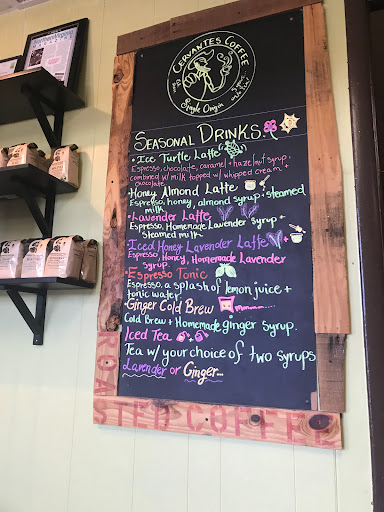 CERVANTES COFFEE
Single Origin
SEASONAL DRINKS
• Ice Turtle Latte
Espresso, chocolate, caramel + hazelnut syrup,
combined w/ milk topped w/ whipped cream +
chocolate
• Honey Almond Latte
Espresso, honey, almond syrup + steamed
milk
• Lavender Latte
Espresso, Homemade Lavender syrup +
steamed milk
• Iced Honey Lavender Latte
Espresso, Honey, Homemade Lavender
syrup.
• Espresso Tonic
Espresso, a splash of lemon juice +
tonic water
Ginger Cold Brew
Cold Brew + Homemade ginger syrup.
Iced Tea
Tea w/ your choice of two syrups
Lavender or Ginger...
ROASTED COFFEE